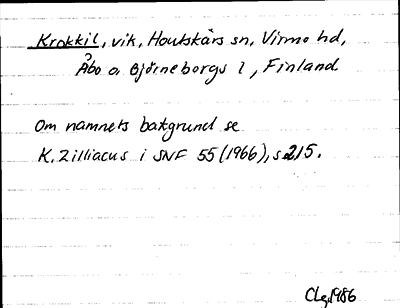 Krokkil, vik, Houtskärs sn, Virmo hd,
Åbo o. Björneborgs l, Finland
Om namnets bakgrund se
K. Zilliacus i SNF 55 (1966), s. 215.
CLg 1986